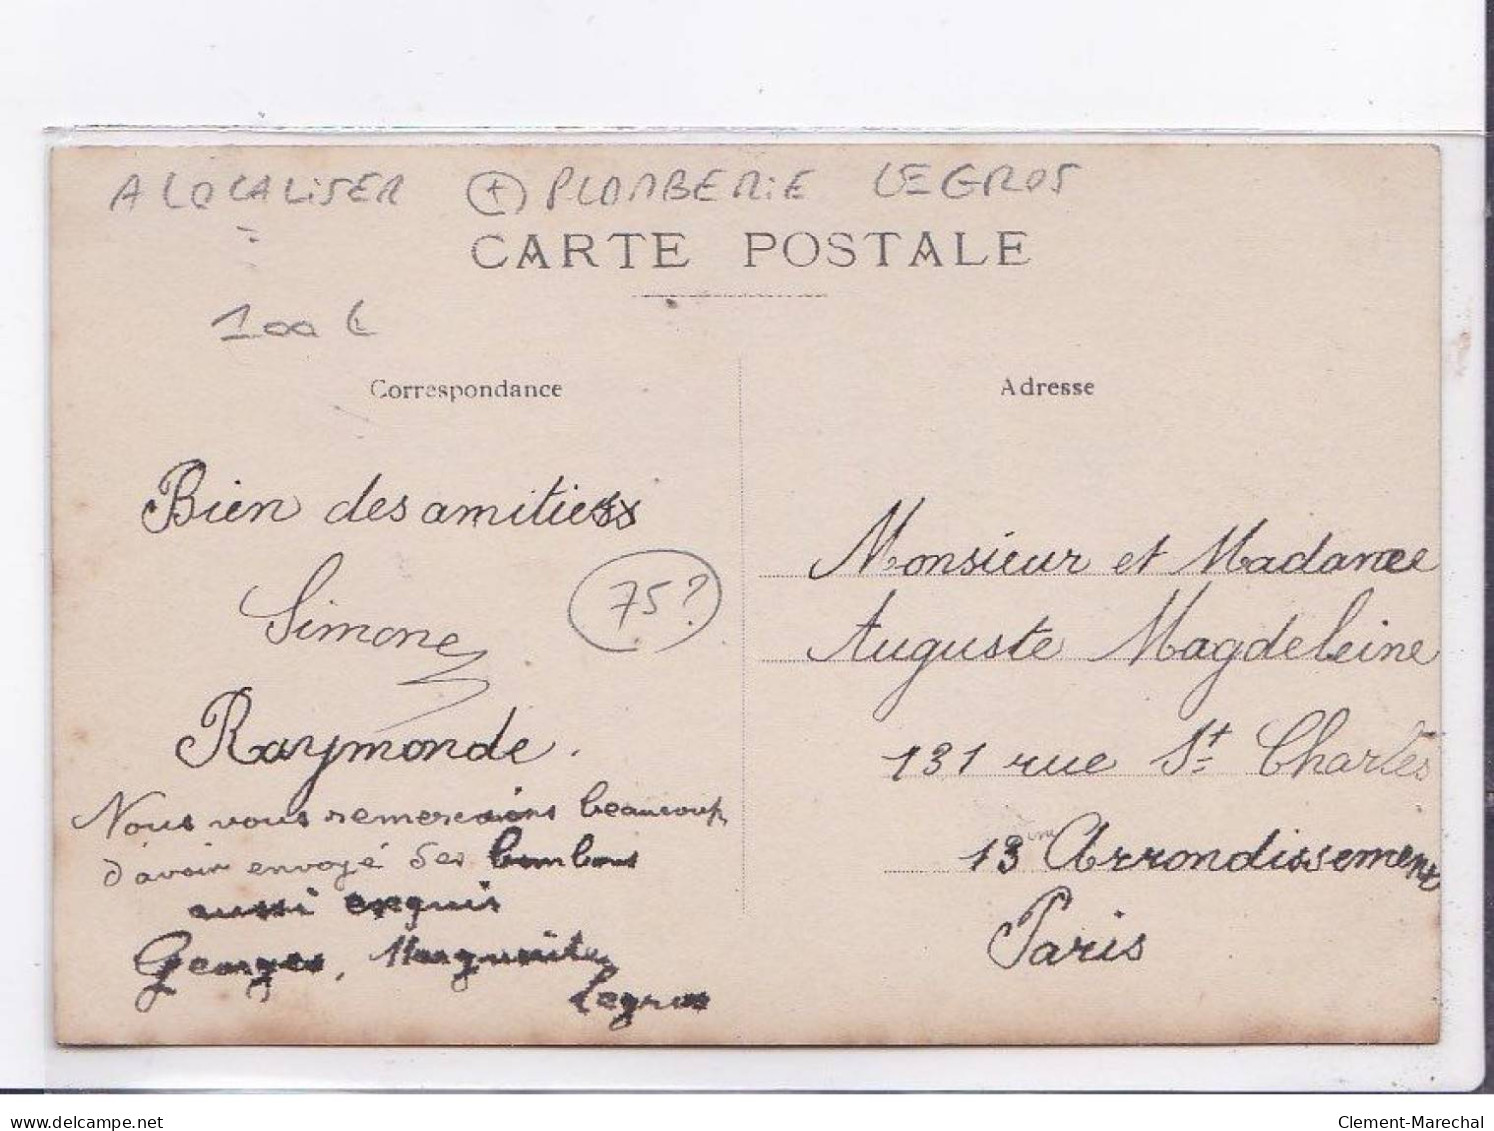 A LOCALiSER + PLOMBERiE LEGROS
CARTE POSTALE
100 €
Correspondance
Bien des amitiess
Simone
75?
Raymonde.
Nous vous remercions beaucoup
d'avoir envoyé des bonbons
aussi exquis
Georges, Marguerite
Legros
Adresse
Monsieur et Madame
Auguste Magdeleine
131 rue St Charles
13em Arrondissement
Paris
delcampe.net
Clement-Marechal